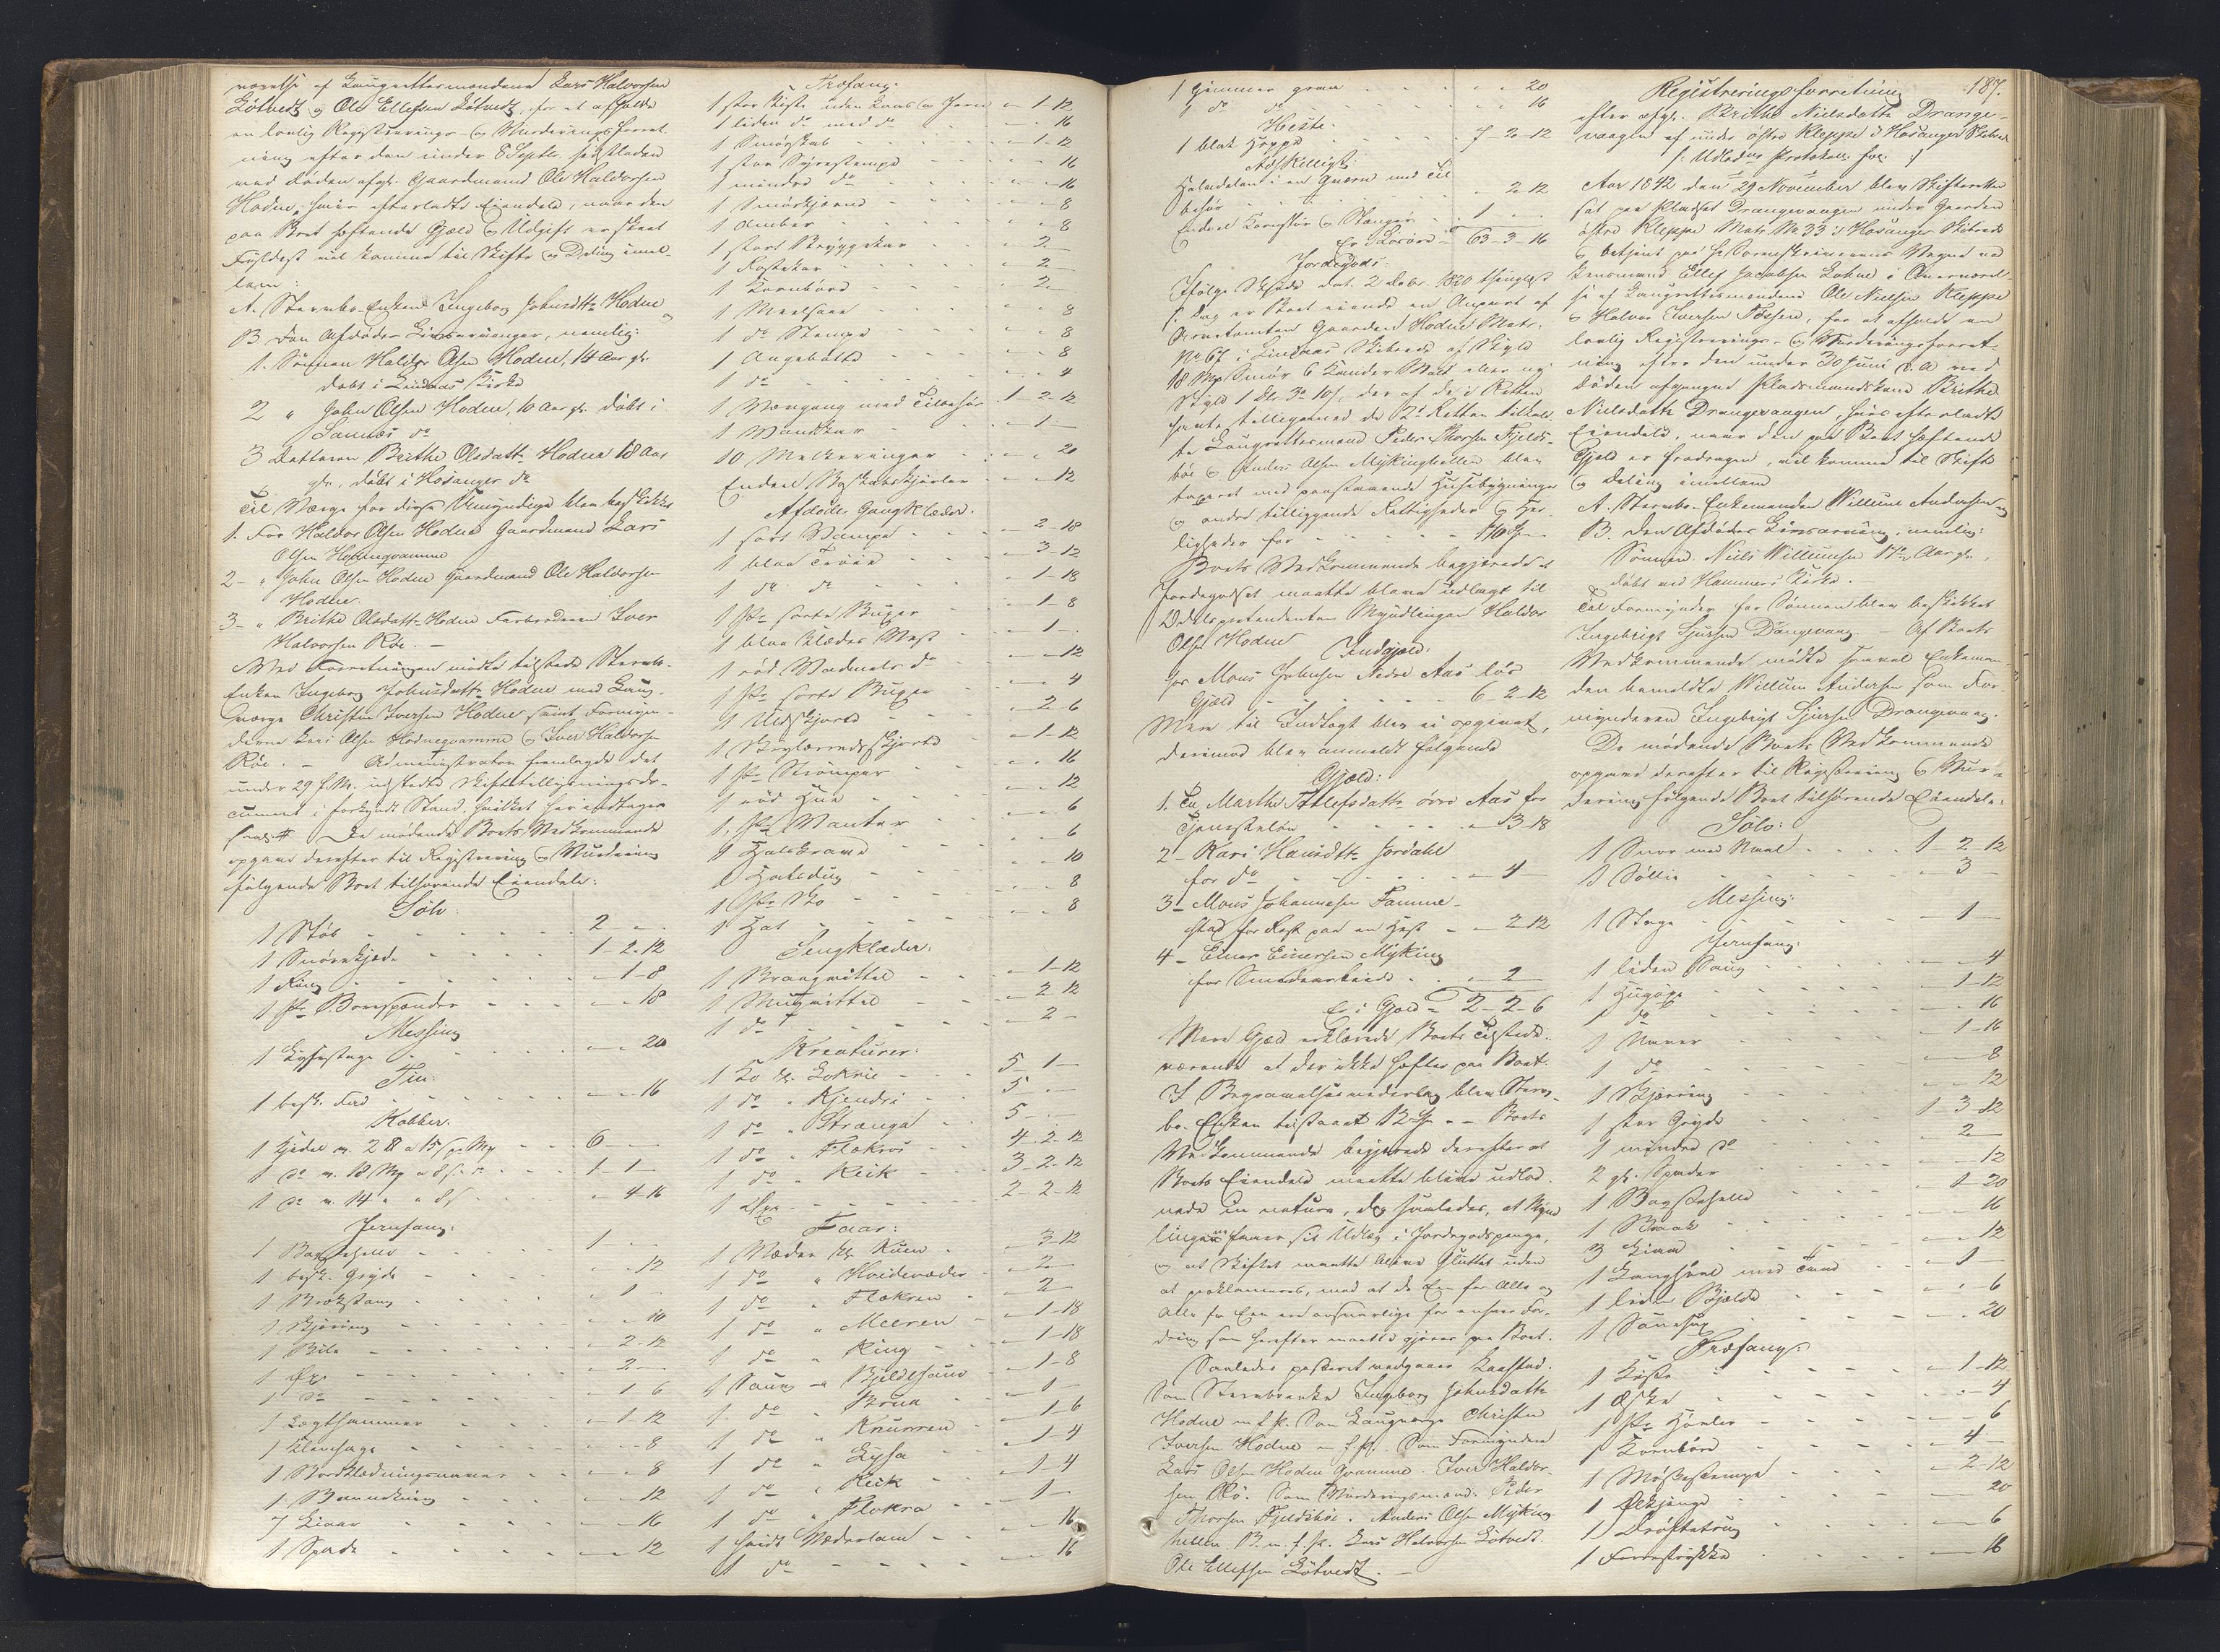 værelse af Laugrettesmændene Lars Halvorsen
Løtvedt og Ole Ellefsen Løtvedt for at afholde
en lovlig Registrerings- og Vurderingsforret-
ning efter den under 8 Septbr. sidstleden
ved Døden afg. Gaardmand Ole Haldorsen
Hodne, hvis efterladte Eiendele, naar den
paa Boet heftende Gjæld og Udgift er
fyldest vil komme til Skifte og Deling imel-
lem:
A. Stervbo-Enken Ingeborg Johnsdttr Hodne
B. Den Afdødes Livsarvinger, nemlig:
1. Sønnen Haldor Olsen Hodne, 14 Aar gl.
døbt i Lindaas Kirke
2 " John Olsen Hodne, 10 Aar gl. døbt i
Samme do
3 Datteren Brithe Olsdattr Hodne 18 Aar
gl., døbt i Hosanger do
Til Værge for disse Umyndige blev beskikket
1. For Haldor Olsen Hodne Gaardmand Lars
Olsen Hodneqvamme
2 - " John Olsen Hodne Gaardmand Ole Haldorsen
Hodne.
3 - " Brithe Olsdattr Hodne Farbroderen Iver
Halvorsen Røe. -
Ved Forretningen mødte tilstede Stervb-
Enken Ingeborg Johnsdattr Hodne med Laug-
værge Christen Iversen Hodne samt Formyn-
derne Lars Olsen Hodneqvamme og Iver Haldorsen
Røe. - Administrator fremlagde det
under 29 f.M. udstedte Skiftetillysningsdo-
cument i forkyndt Stand hvilket her indtages
De mødende Boets Vedkommende
opgave derefter til Registrering og Vurdering
følgende Boet tilhørende Eiendele:
Sølv:
1 Støb - - 2 - -
1 Snørekjæde - - 1-2-12
1 Ring - - 1-8
1 Pr Borespænder - - 18
Messing
1 Lysestage - - 20
Tin:
1 besk. Fad - - 16
Kobber:
1 Kjedel v. 2 ℔ a 15 ß pr Mrk - 6 -
1 do v. 18 Mrk a 8 ß do - 1-1-
1 do v. 14 " a 8 ß - 4-16
Jernfang:
1 Bagstehelle - - 1 -
1 besk. Gryde - - 12
1 Brekstang - - 1 -
1 Skjæring - - 10
1 Bile - - 2-12
1 Øxe - - 2 -
1 do - - 1-6
1 Lægthammer - - 1-12
1 Klovsage - - 8
1 Bordklædningsnaver - - 8
1 - - 12
7 Liaar - - 16
1 Spade - - 12
Træfang:
1 stor Kiste uden Laas og Jern - 1-12
1 liden do med do - 16
1 Smørskab - - 1-12
1 stor Syrestampe - - 16
1 mindre do - - 16
1 Smørkjerne - - 8
1 Ambar - - 8
1 stort Bryggekar - - 2 -
1 Rostekar - - 2 -
1 Kornbøre - - 2 -
1 Meelsaae - - 8
1 do Stampe - - 8
1 Angebøtte - - 8
1 do - - 4
1 Vævgang med Tilbehør - 1-2-12
1 Vandkar - - 1 -
10 Melkeringer - - 20
Endeel Boskabskjørler - - 12
Afdødes Gangklæder.
1 sort Vampe - - 2-18
1 blaa Trøie - - 3-12
1 do do - - 1-18
1 Pr sorte Buxer - - 1-8
1 blaa Klædes Vest - - 1 -
1 rød Vadmels do - - 12
1 Pr sorte Buxer - - 4
1 Uldskjorte - - 2-6
1 Skjorte - - 1-12
1 Pr Strømper - - 16
1 rød Hue - - 12
1 Pr Vanter - - 6
1 Halskrave - - 6
1 Halsdug - - 10
1 Pr Sko - - 8
1 Hat - - 8
Sengklæder:
1 Braagvittel - - 1-12
1 - - 2-12
1 do - - 2 -
Kreaturer:
1 Ko kl. Lokrie - - 5-1-
1 do " Kjendri - - 5 - -
1 do " Stranga - - 5 - -
1 do " Flekroi - - 4-2-12
1 do " Reik - - 3-2-12
1 - - 2-2-12
Faar:
1 Væder kl. Kuen - - 3-12
1 do " Hvidevæder - - 2 -
1 do " Flekren - - 2 -
1 do " Meeren - - 1-18
1 do " Ring - - 1-18
1 Sau " - - 1-8
1 do " Brun - - 1 -
1 do " Knurren - - 1-6
1 do " Lysa - - 1-4
1 do " Reik - - 1-4
1 do " Flokra - - 1 -
1 hvidt Væderlam - - 16
1 do - - 16
1 gimmer graa - - 20
1 do do - - 16
Heste:
1 blak Hoppe - - 7-2-12
Adskilligt:
Halvdelen i en Qværn med Til-
behør - - 2-12
Endeel Kornstør og Stænger - 1 - -
Er Løsøre - 63-3-16
Jordegods:
Ifølge Skjøde dat. 2 Debr. 1820 thinglæst
s. Dag er Boet eiende en Anpart af
Gaarden Hodne Matr.
No 67 i Lindaas Skibrede af Skyld
18 Mrk Smør 6 Kander Malt eller ny
Skyld 1 Dlr. 3 ort 10 ß, der af de i Retten
samt tilligemed de 2de Retten tilkald-
te Laugrettesmænd Peder Thorsen Fjelds-
bøe og Anders Olsen Mykinghellen blev
taxeret med paastaaende Huusebygninger
og andre tilliggende Rettigheder og Her-
ligheder for - - - 170 Spd -
Boets Vedkommende begjerede at
Jordegodset maatte blive udlagt til
Odelsprætendenten Myndlingen Haldor
Olsen Hodne
Indgjæld.
hos Mons Johnsen Nedre Aas løs
Gjæld - - 6-2-12
Mere til Indtægt blev ei opgivet,
derimod blev anmeldt følgende
Gjæld:
1. Til Marthe Ellefsdattr øvre Aas for
Tjenesteløn - - 3-18
2 - Kari Hansdttr Jordahl
for do - - 4 -
3 - Mons Johannesen Famme-
stad for Rest paa en Hest - - 2-12
4 - Einer Einersen Myking
for Smedearbeide - - 2 -
Er i Gjæld = 2-2-6
Mere Gjæld erklærede Boets Tilstede-
værende at der ikke hefter paa Boet.
I Begravelsesvederlag blev Sterv-
bo-Enken tilstaaet 12 Spd - - Boets
Vedkommende begjerede derefter at
Boets Eiendele maatte blive udlod-
nede in natura, dog saaledes, at Mynd-
lingerne faaer sit Udlæg i Jordegodspenge,
og at Skiftet maatte blive sluttet uden
at proklameres, mod at de Een for Alle og
Alle for Een ere ansvarlige for enhver For-
dring som herefter maatte gjøres paa Boet.
Saaledes passeret vedgaaer
Som Stervboenke Ingeborg Johnsdattr
Hodne m.f.P. Som Laugværge Christen
Iversen Hodne m.f.P. Som Formyndere
Lars Olsen Hodne Qvamme. Iver Haldor-
sen Rø. Som Vurderingsmænd: Peder
Thorsen Fjeldsbøe. Anders Olsen Myking-
hellen m.f.P. Lars Halvorsen Løtvedt.
Ole Ellefsen Løtvedt. -
187.
Registreringsforretning
efter afg. Brithe Nielsdattr Drange-
vaagen af under østre Kleppe i Hosanger Skibr.
/: Udlodn. Protokoll. fol. :/
Aar 1842 den 29 November blev Skifteretten
sat paa Pladset Drangevaagen under Gaarden
østre Kleppe Matr. No 33 i Hosanger Skibrede
og betjent paa Sorenskriverens Vegne ved
Lensmand Ellef Jacobsen Lohne i Overværel-
se af Laugrettesmændene Ole Nielsen Kleppe
og Halvor Iversen Fosse, for at afholde en
lovlig Registrerings- og Vurderingsforret-
ning efter den under 30 Juni d.A. ved
Døden afgangne Pladsmandskone Brithe
Nielsdattr Drangevaagen, hvis efterladte
Eiendele, naar den paa Boet heftende
Gjæld er fradragen, vil komme til Skifte
og Deling imellem
A. Stervbo-Enkemanden Willum Andersen og
B. Den Afdødes Livsarving, nemlig:
Sønnen Niels Willumsen 17 Aar gl.,
døbt ved Hammers Kirke.
Til Formynder for Sønnen blev beskikket
Ingebrigt Sjursen Dangevaag - Af Boets
Vedkommende mødte saavel Enkeman-
den bemeldte Willum Andersen som For-
mynderen Ingebrigt Sjursen Drangevaag.
De mødende Boets Vedkommende
opgave derefter til Registrering og Vur-
dering følgende Boet tilhørende Eiendele:
Sølv:
1 Snor med Naal - - 1-2-12
1 Søllie - - 3 -
Messing:
1 Stage - - 1 -
Jernfang:
1 liden Saug - - 4
1 Hugøxe - - 1-12
1 do - - 16
1 Naver - - 1-16
1 do - - 8
1 Skjæring - - 12
1 stor Gryde - - 1-3-12
1 mindre do - - 2 -
2 gl. Spader - - 12
1 Bagstehelle - - 1-20
1 Braak - - 16
3 Liaae - - 12
1 Langhøvel med Tand - - 1 -
1 liden Bjælde - - 6
1 - - 20
Træfang:
1 Kiste - - 1-12
1 Æske - - 4
1 Pr Høvler - - 6
1 Kornbøre - - 4 -
1 - - 2-12
1 Ølkjenge - - 20
1 Drøftetrug - - 6
1 - - 16